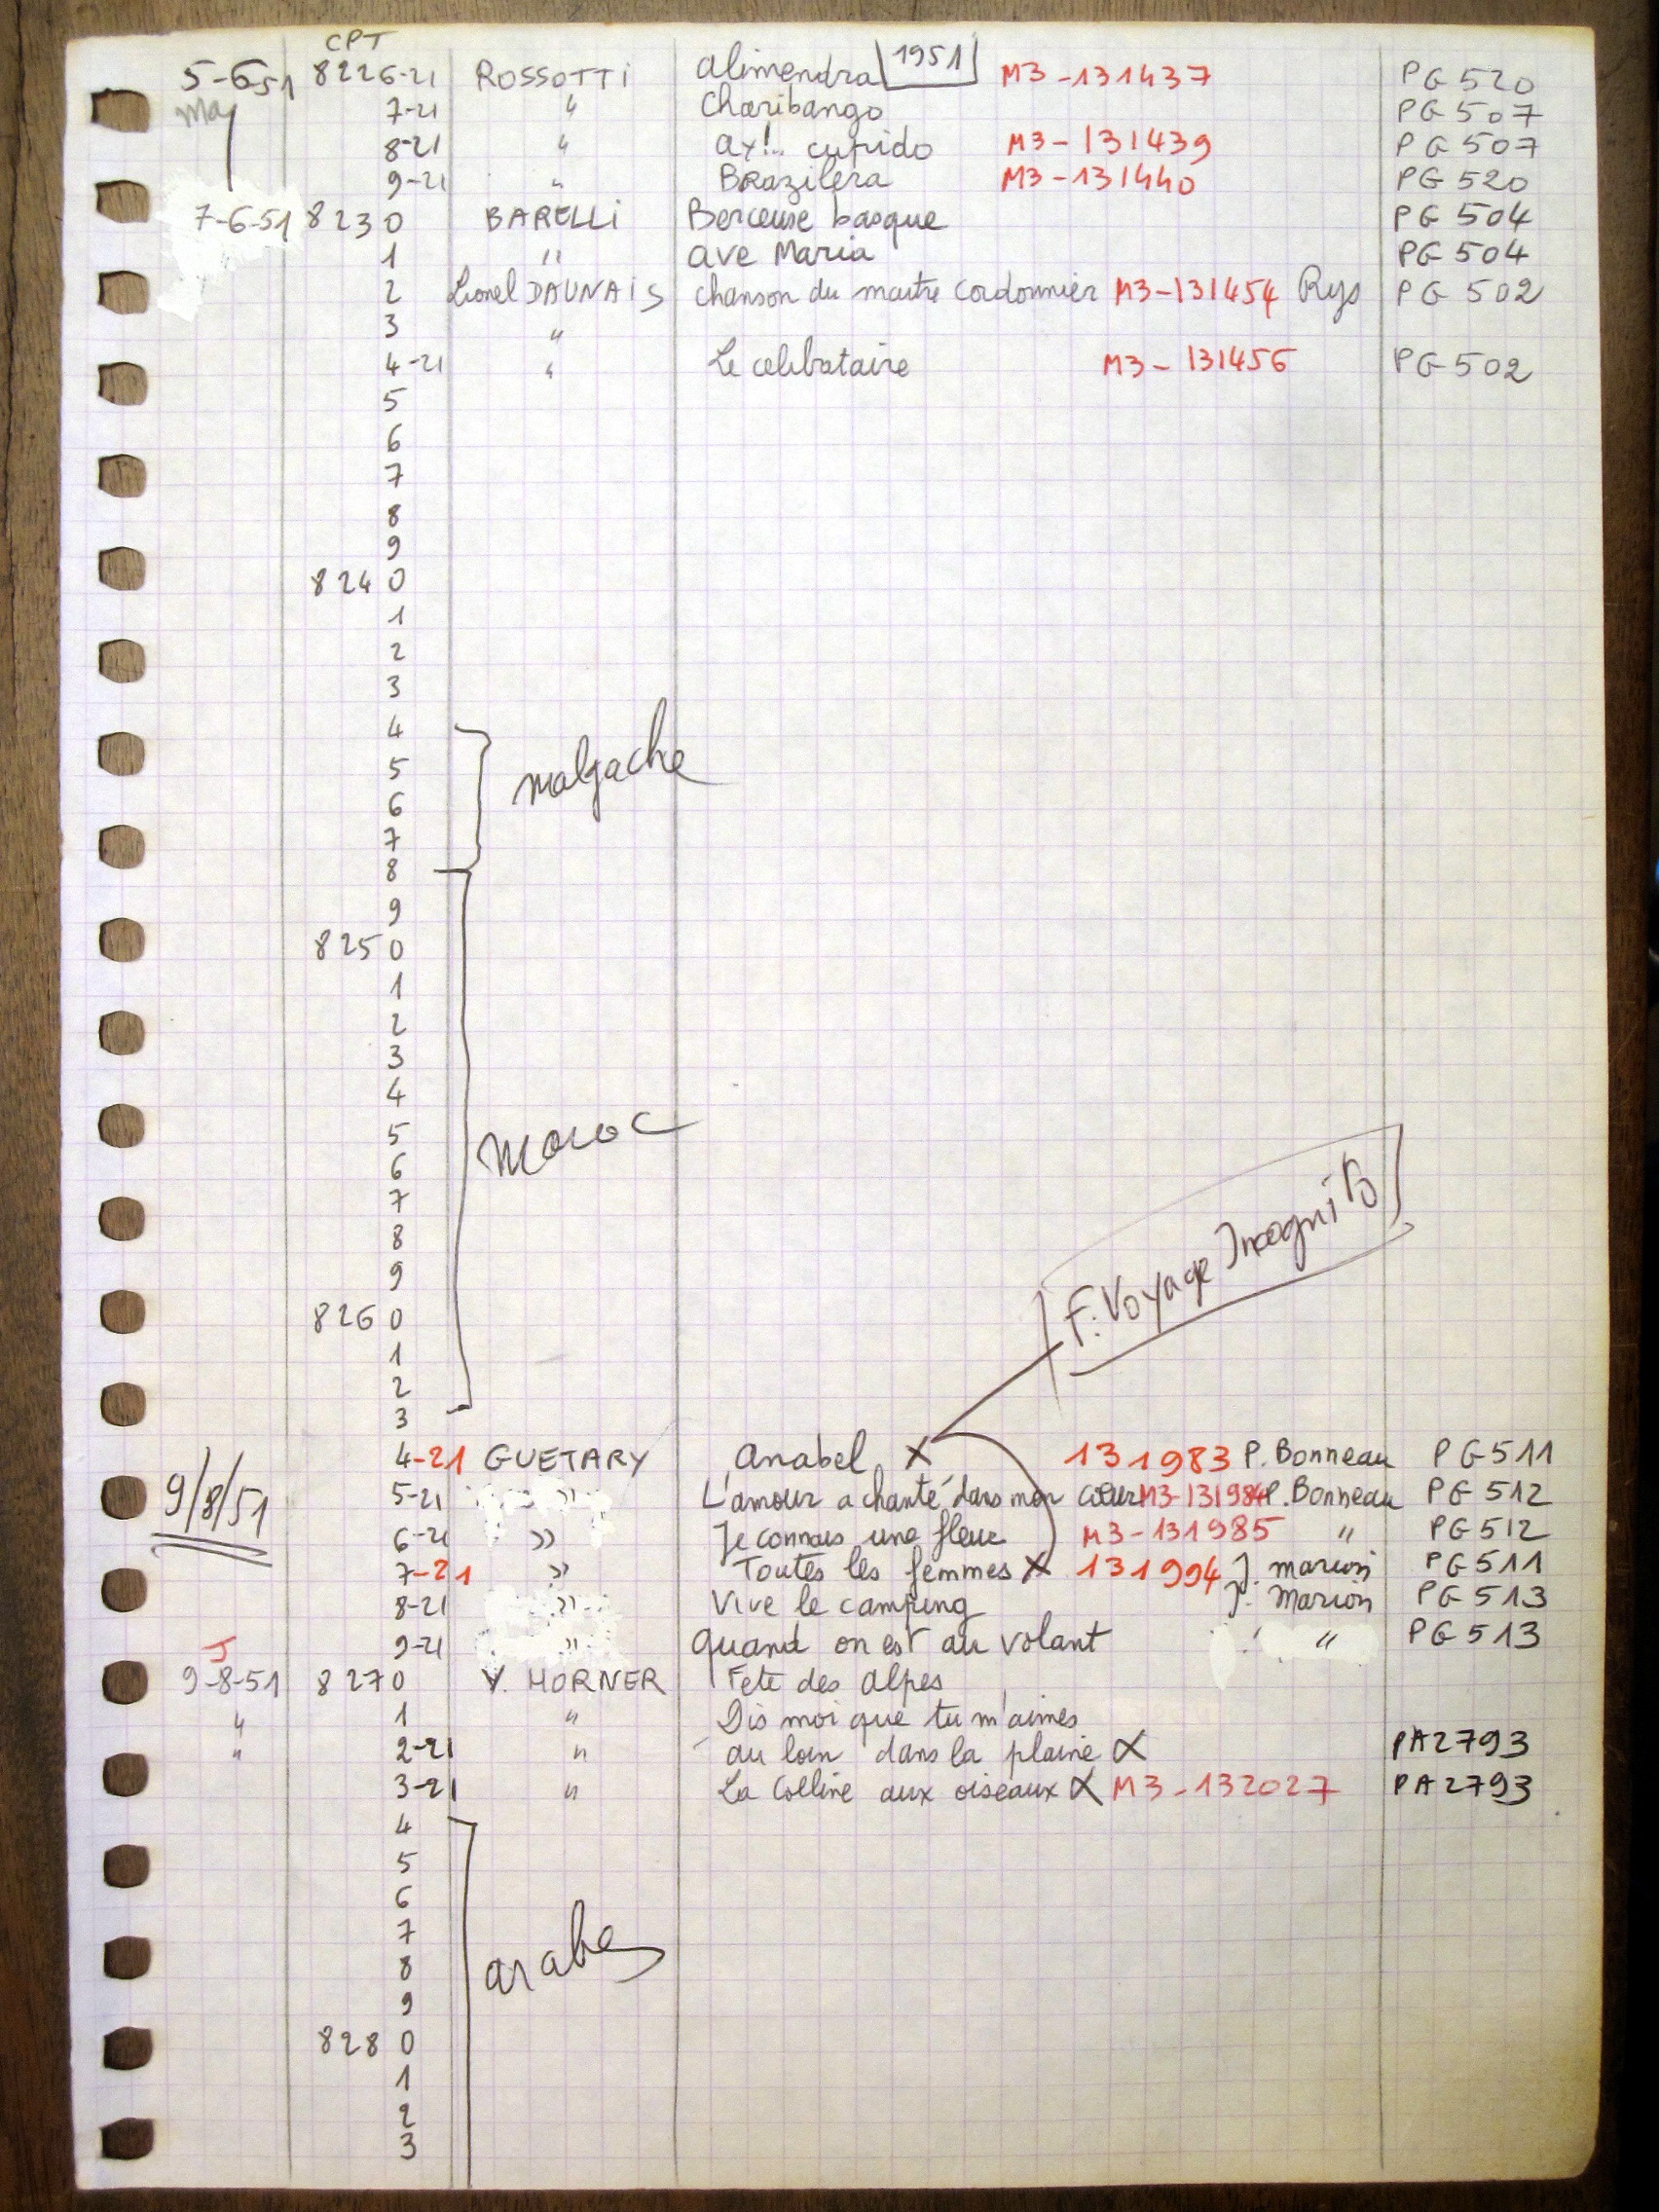 CPT
5-6-51 8226-21 ROSSOTTi alimendra 1951 M3-131437 PG 520
May 7-21 " Charibango PG 507
8-21 " ay!.. cupido M3-131439 PG 507
9-21 " BRazilera M3-131440 PG 520
7-6-51 8230 BARELLi Berceuse basque PG 504
1 " ave Maria PG 504
2 Lionel DAUNAiS chanson du maitre cordonnier M3-131454 Rys PG 502
3 "
4-21 " Le celibataire M3-131456 PG 502
5
6
7
8
9
8240
1
2
3
4
5 malgache
6
7
8
9
8250
1
2
3
4
5 Maroc
6
7
8
9
F. Voyage Incognito
8260
1
2
3
4-21 GUETARY anabel X 131983 P. Bonneau PG511
9/8/51 5-21 " L'amour a chanté dans mon cœur M3-131984 P. Bonneau PG 512
6-21 " Je connais une fleur M3-131985 " PG512
7-21 " Toutes les femmes X 131994 J. marion PG511
8-21 " Vive le camping J. Marion PG 513
J 9-21 " quand on est au volant " PG 513
9-8-51 8270 Y. HORNER Fete des alpes
" 1 " Dis moi que tu m'aimes
" 2-21 " au loin dans la plaine X PA2793
3-21 " La Colline aux oiseaux X M3-132027 PA2793
4
5
6
7
8 arabes
9
8280
1
2
3